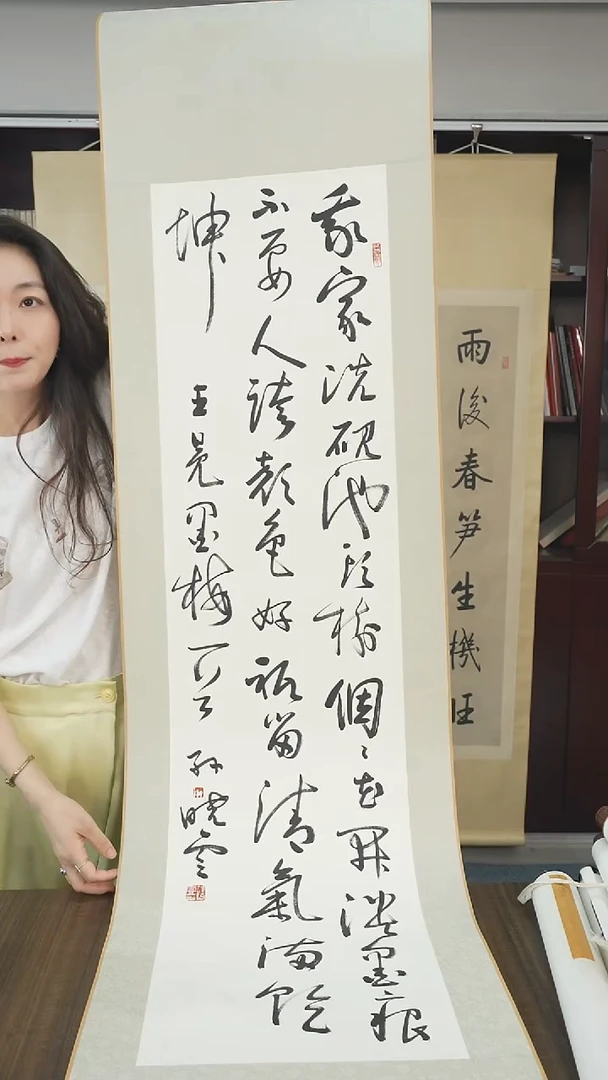 我家洗硯池頭樹個〻花開淡墨痕
不要人誇顏色好祇留清氣滿乾
坤 王冕墨梅一首 孫曉雲
雨後春笋生機旺